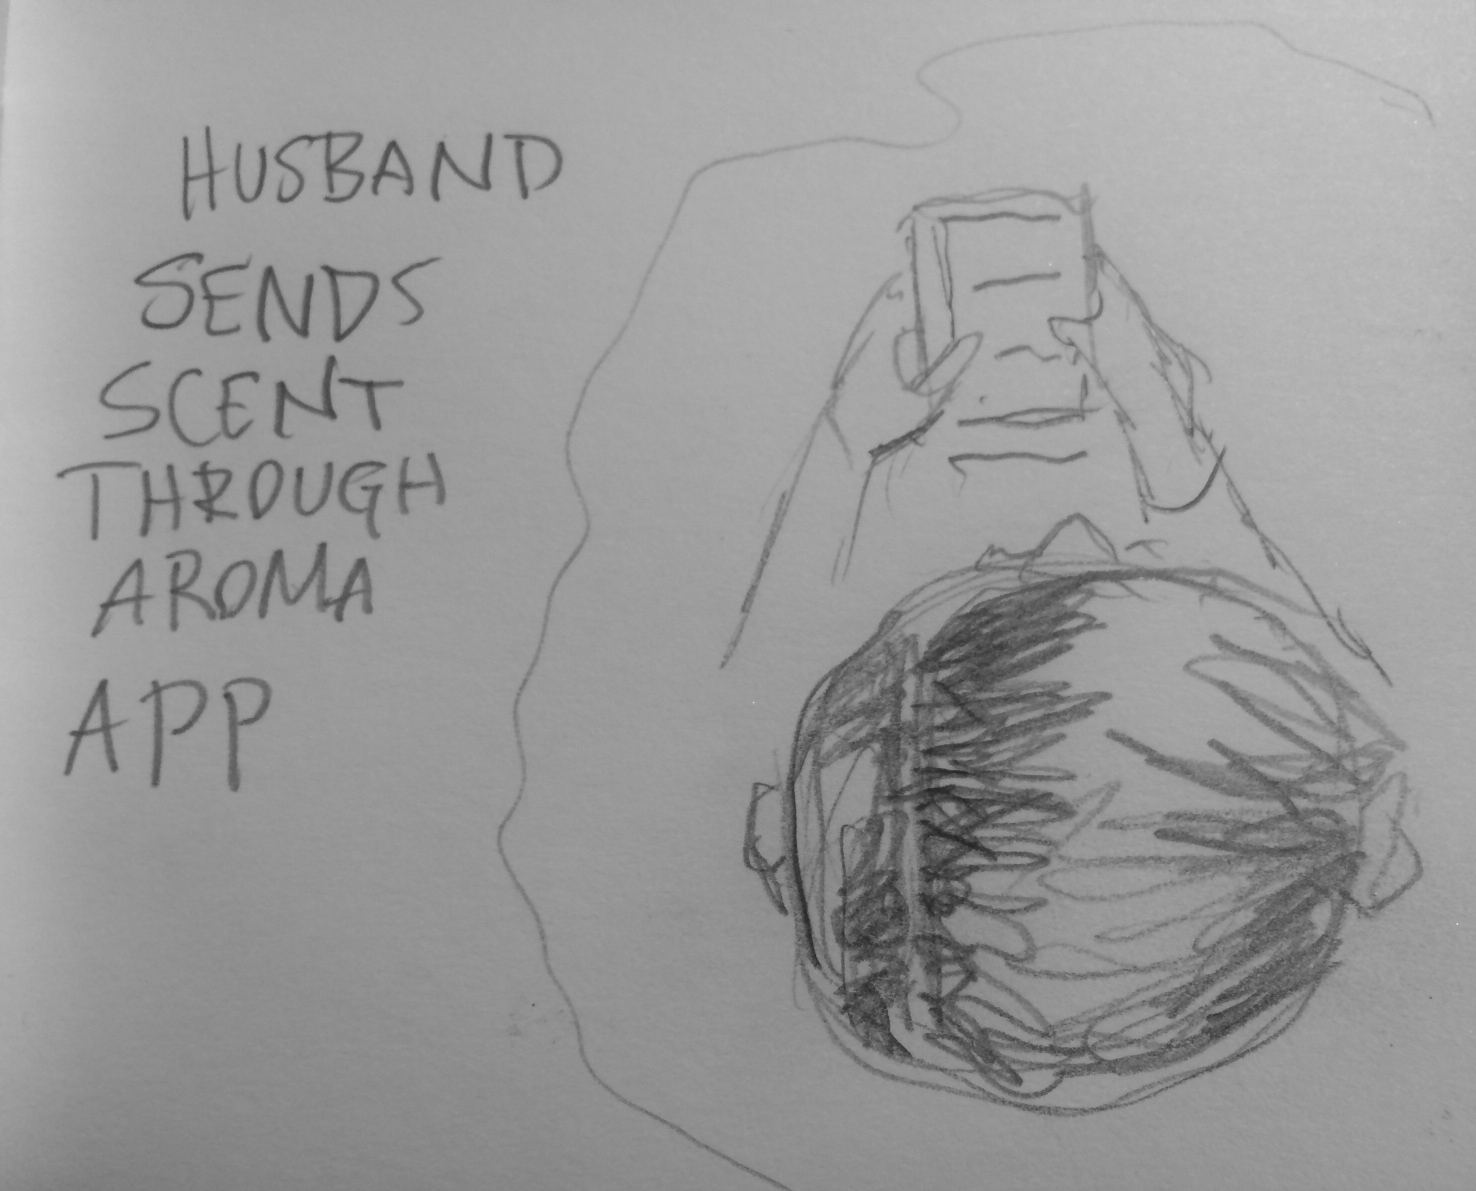 HUSBAND
SENDS
SCENT
THROUGH
AROMA
APP